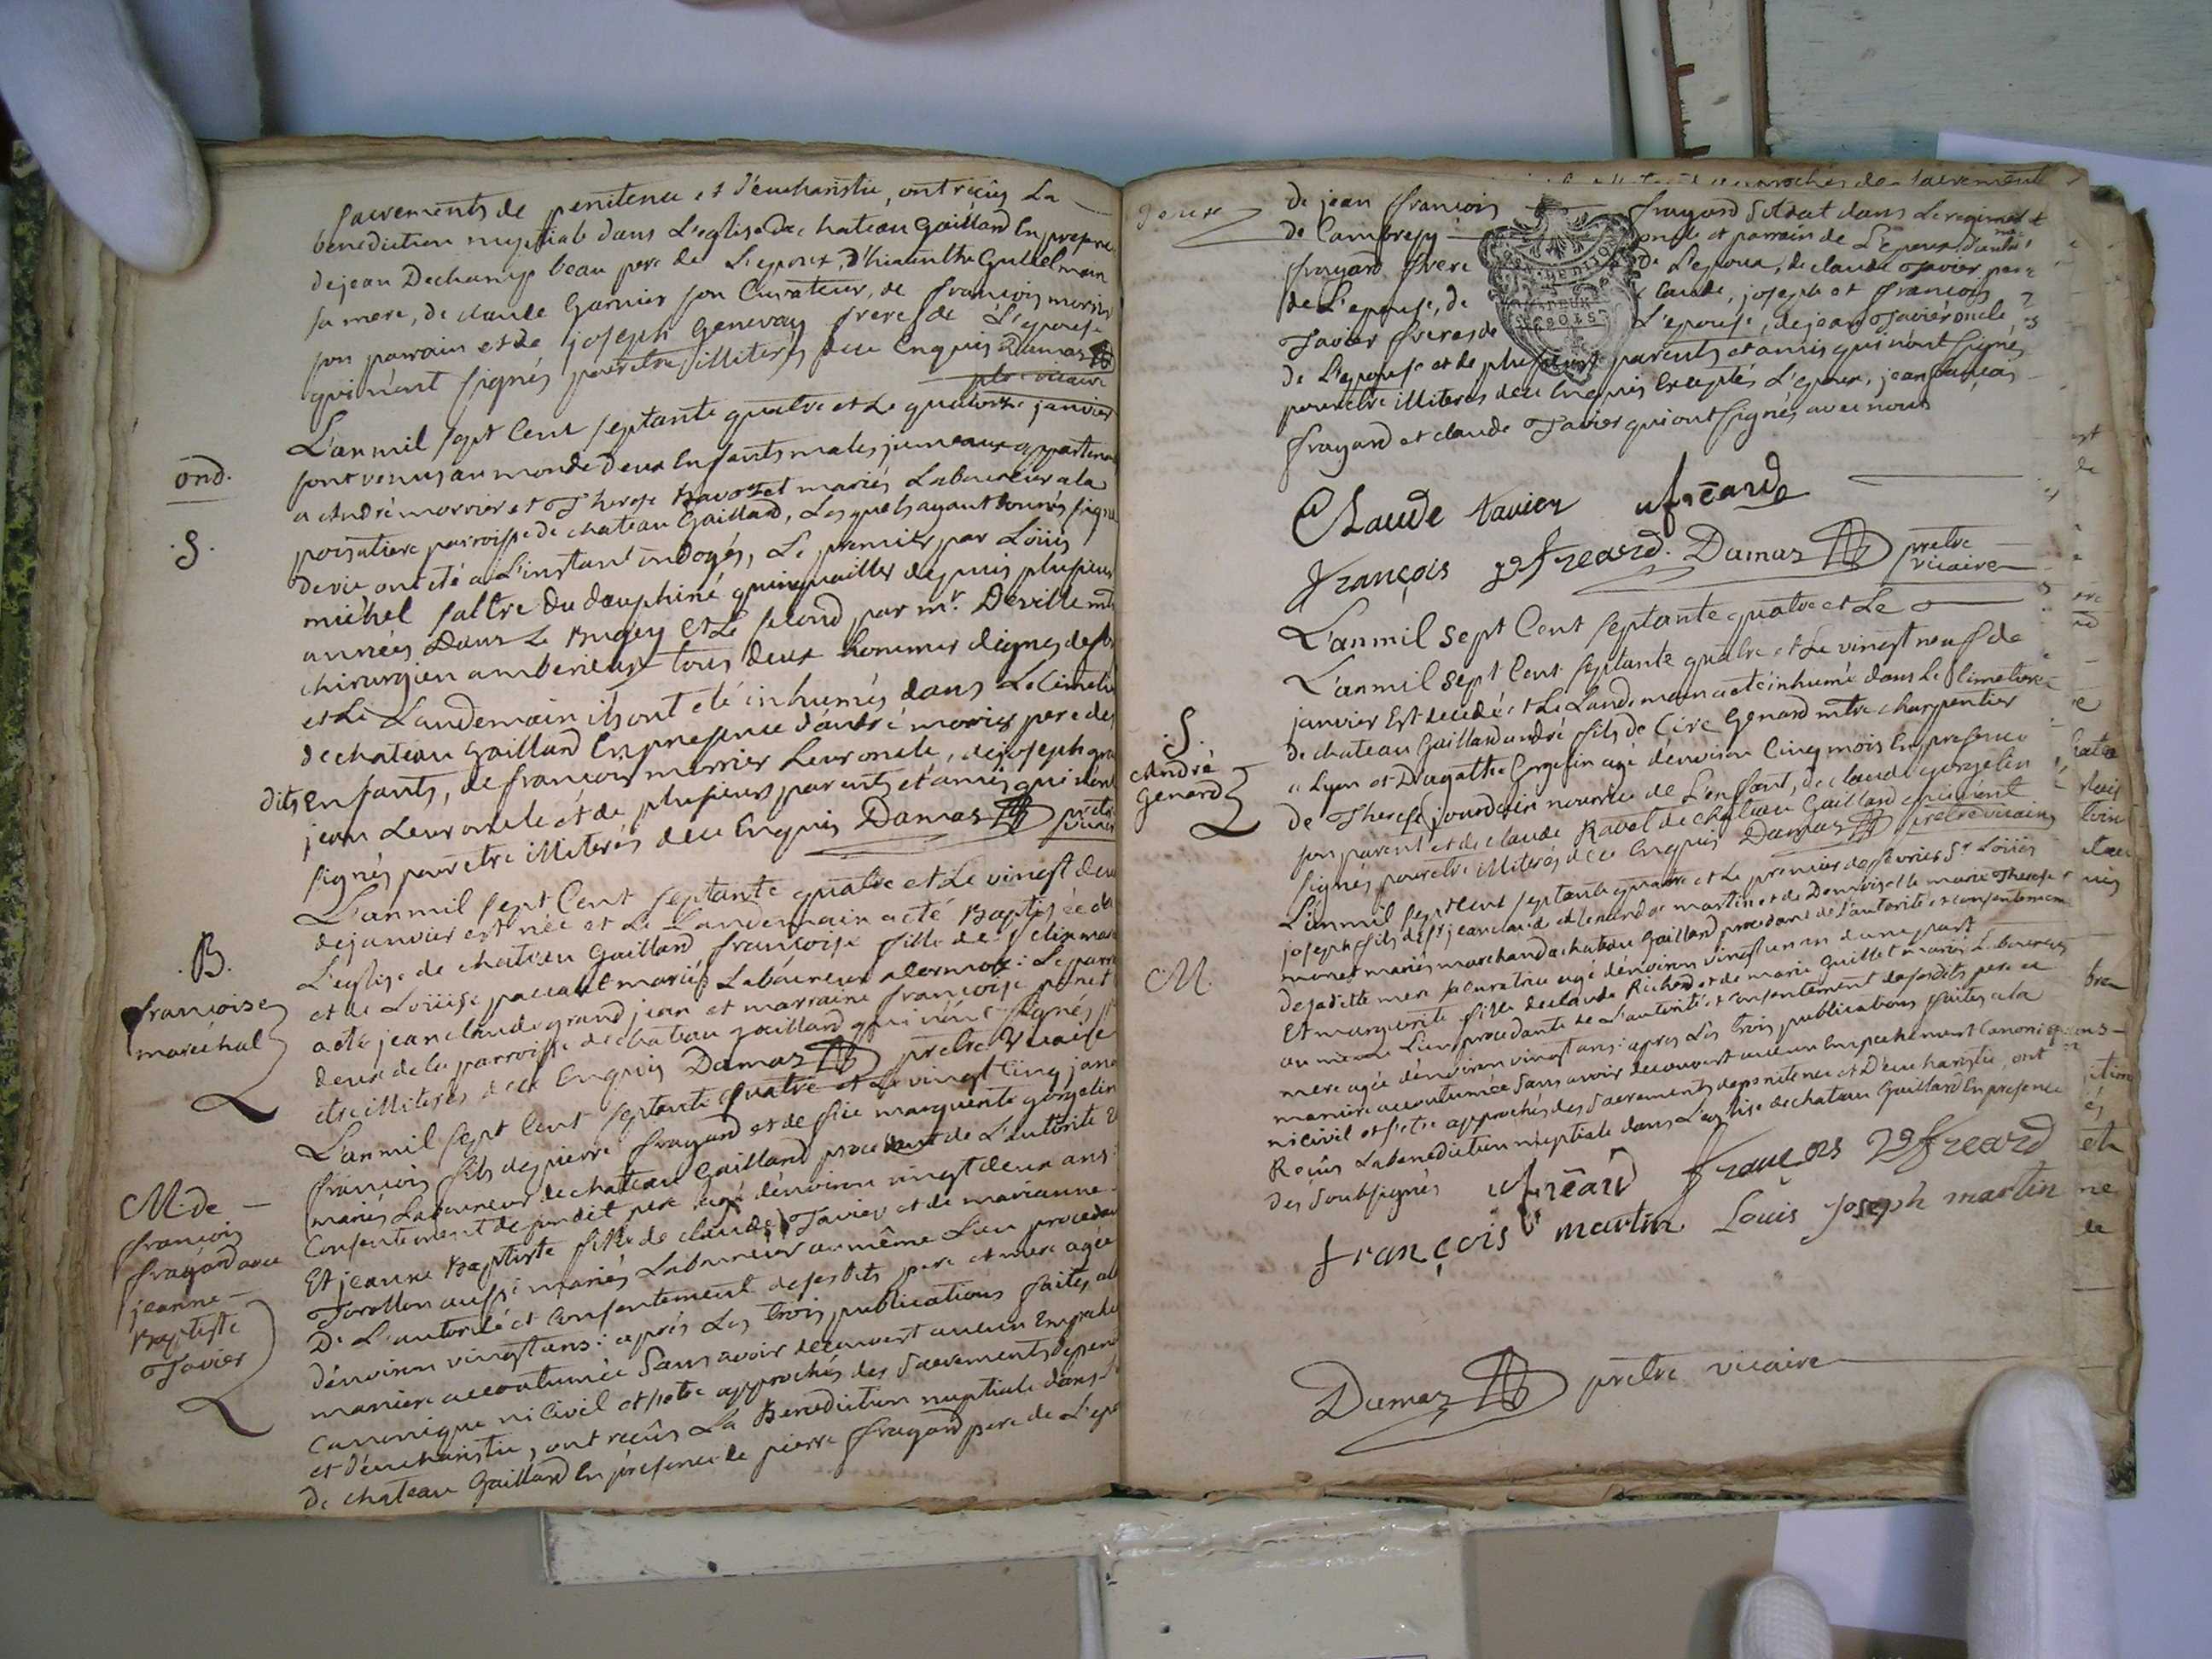 sacrements de penitence et d'eucharistie, ont reçûs La
benediction nuptiale dans L'eglise de chateau Gaillard En presence
de jean Dechamp beau pere de L'epoux, d'hiacinthe Guillelmain
sa mere, de claude Garnier son Curateur, de françois morin
son parrain et de joseph Genevay frere de L'epouse
qui n'ont signés pour etre illiterés de ce Enquis Damas
ptre vicaire
L'an mil sept Cent septante quatre et Le quatorze janvier
ond.
sont venus au monde deux Enfants males jumeaux appartena
a André morrier et Therese Ravoret mariés Laboureur a la
.S.
poisatiere parroisse de chateau Gaillard, Lesquels ayant donnés signe
de vie ont eté a L'instant ondoyés, Le premier par Loüis
michel saltre du dauphiné quinquailler depuis plusieurs
années dans Le Bugey et Le second par mr. Deville mtre
chirurgien amberieux tous deux hommes dignes de foi
et Le Laudemain ils ont eté inhumés dans Le Cimetie
de chateau Gaillard En presence d'andré morrier pere des
dits Enfants, de françois morrier Leur oncle, de joseph gra
jean Leur oncle et de plusieurs parents et amis qui n'ont
signés pour etre illiterés de ce Enquis Damas pretre
vicaire
L'an mil sept Cent septante quatre et Le vingt deux
de janvier est née et Le Landemain a eté Baptisée da
.B.
françoise
marechal
L'eglise de chateau Gaillard françoise fille de felix mare
et de Loüise paccaut mariés Laboureur a Cormoz : Le parra
a eté jean claude grand jean et marraine françoise
deux de la parroisse de chateau gaillard qui n'ont signés p
etre illiterés de ce Enquis Damas pretre Vicaire
L'an mil sept Cent septante quatre et Le vingt Cinq janv
M. de
françois
frayard avec
jeanne
Baptiste
Tavier
françois fils de pierre frayard et de feüe marguerite gorgelin
mariés Laboureur de chateau Gaillard procedant de L'autorité &
Consentement de sondit pere agé d'environ vingt deux ans :
Et jeanne Baptiste fille de claude Tavier et de marianne
Torollon aussi mariés Laboureur au même Lieu procedan
De L'autorité et Consentement de sesdits pere et mere agée
d'environ vingt ans : aprés Les trois publications faites a la
maniere accoutumée Sans avoir decouvert aucun Empeche
Canonique ni Civil et s'etre approchés des Sacrements de peni
et d'eucharistie, ont reçûs La Benediction nuptiale dans L'
de chateau Gaillard En presence de pierre frayard pere de L'epo
de jean françois frayard Soldat dans Le regiment
de Cambresy oncle et parrain de L'epoux, d'andré
frayard frere de L'epoux, de claude Tavier pere
de L'epouse, de Claude, joseph et françois
Tavier freres de L'epouse, de jean Tavier oncle
de L'epouse et de plusieurs parents et amis qui n'ont signés
pour etre illiterés de ce Enquis Exceptés L'epoux, jean françois
frayard et claude Tavier qui ont signés avec nous
Claude tavier
françois freard. Damas pretre
vicaire
L'an mil sept Cent septante quatre et Le
L'an mil sept Cent septante quatre et Le vingt neuf de
janvier Est decedé et Le Landemain a eté inhumé dans Le Cimetiere
.S.
André
Genard
de chateau Gaillard andré fils de Cire Genard mtre charpentier
a Lyon et D'agathe Gorgelin agé d'environ Cinq mois En presence
de Therese jourdain nourrice de L'enfant, de claude gorgelin
son parent et de claude Ravet de chateau Gaillard qui n'ont
signés pour etre illiterés de ce Enquis Damas pretre vicaire
L'an mil sept Cent septante quatre et Le premier de fevrier Sr Loüis
joseph fils de sr jean claude Leonard martin et de Demoiselle marie Therese
M.
monet mariés marchand a chateau Gaillard procedant de L'autorité et consentement
de sadite mere sa curatrice agé d'environ vingt un an d'une part
Et marguerite fille de claude Richard et de marie Guillet mariés Laboureurs
au même Lieu procedante de L'autorité et Consentement de sesdits pere et
mere agée d'environ vingt ans : apres Les trois publications faites a la
maniere accoutumée Sans avoir decouvert aucun Empechement Canonique
ni civil et s'etre approchés des Sacrements de penitence et D'eucharistie, ont
Reçûs La benediction nuptiale dans L'eglise de chateau Gaillard En presence
des Soubsignés françois freard
françois martin Louis Joseph martin
Damas pretre vicaire